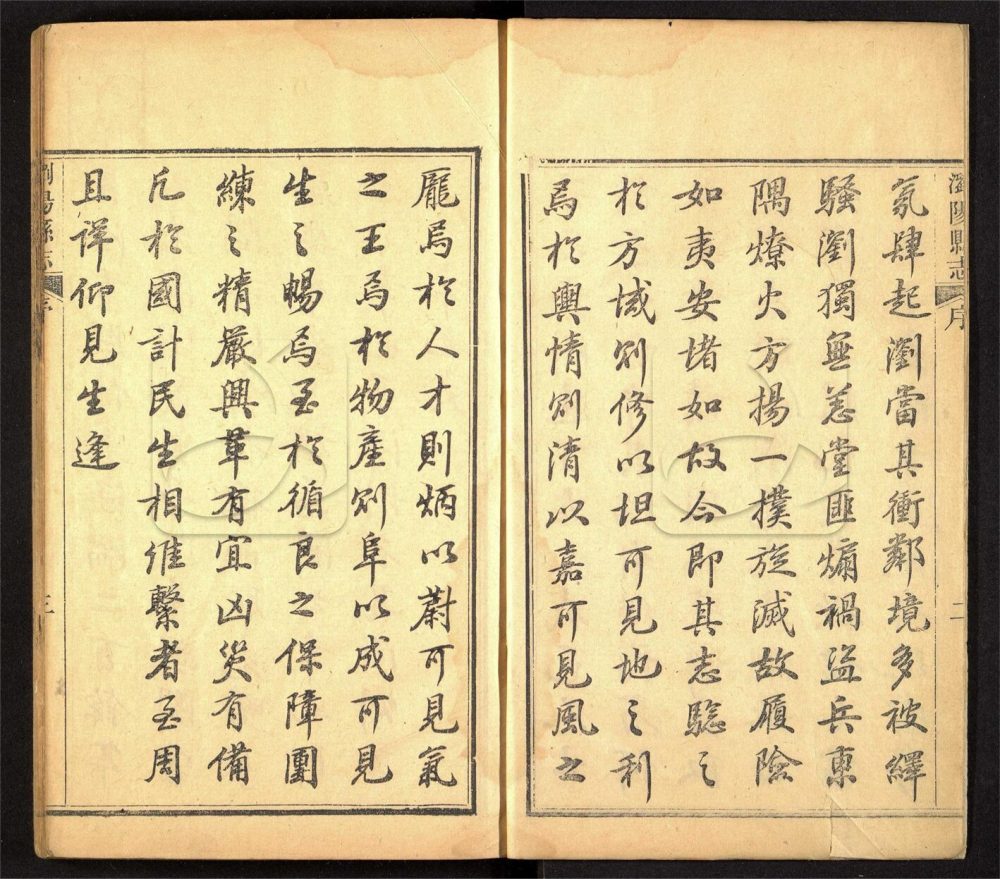 瀏陽縣志 序 二
氛肆起瀏當其衝鄰境多被繹
騷瀏獨無恙堂匪煽禍盜兵東
隅燎火方揚一撲旋滅故履險
如夷安堵如故今即其志驗之
於方域則修以坦可見地之利
焉於輿情則清以嘉可見風之
龐焉於人才則炳以蔚可見氣
之王焉於物產則阜以成可見
生之暢焉至於循良之保障團
練之精嚴興革有宜凶災有備
凡於國計民生相維繫者至周
且詳仰見生逢
瀏陽縣志 序 三